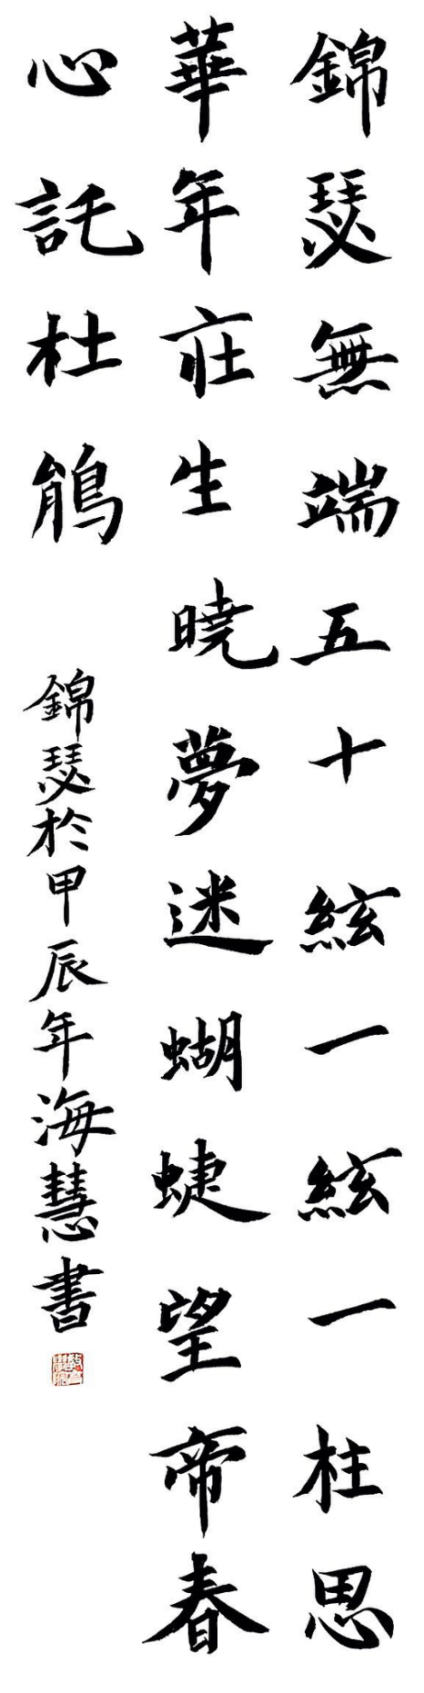 錦瑟無端五十絃一絃一柱思
華年莊生曉夢迷蝴蜨望帝春
心託杜鵑
錦瑟於甲辰年海慧書